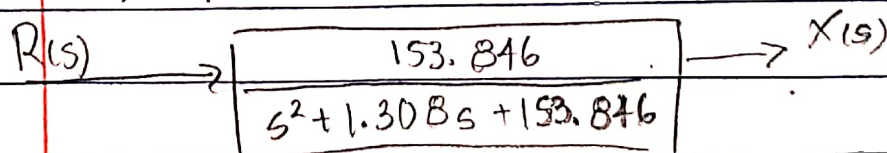 R(s) → 153.846 → X(s)
s² + 1.308s + 153.846